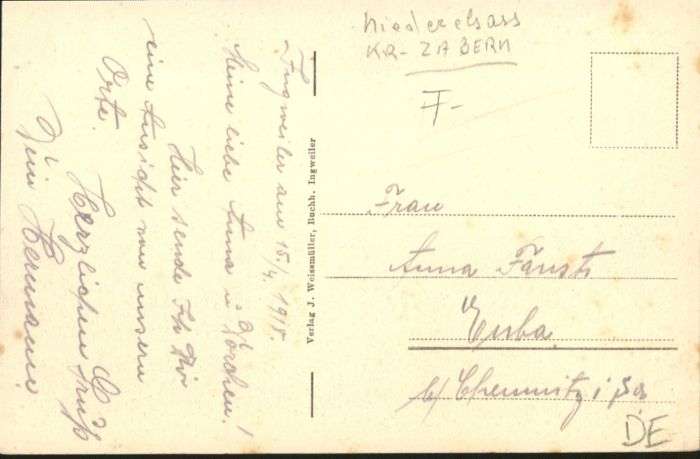 Niederelsass
KR-ZABERN
F-
Ingweiler am 15/4. 1918.
Meine liebe Anna u. Dorchen!
Hier sende Ich Dir
eine Ansicht von unserm
Orte.
Herzlichen Gruß
Dein Hermann
Verlag J. Weissmüller, Buchh. Ingweiler
Frau
Anna
Euba
b/ Chemnitz i/Sa
DE